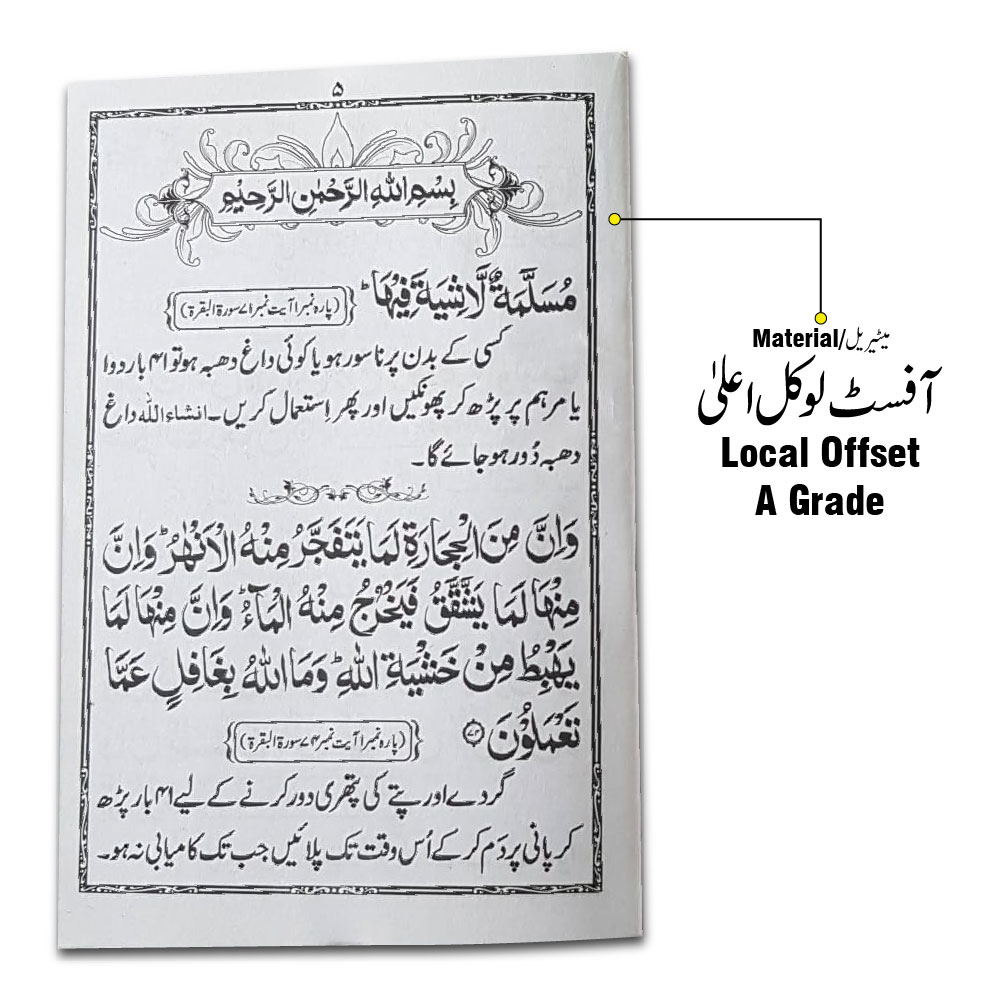 ۵
بِسْمِ اللهِ الرَّحْمٰنِ الرَّحِيْمِ
مُسَلَّمَةٌ لَّا شِيَةَ فِيْهَا ؕ
(پارہ نمبر۱ آیت نمبر۷۱ سورۃ البقرۃ)
کسی کے بدن پر ناسور ہو یا کوئی داغ دھبہ ہو تو ۴۱ بار دوا
یا مرہم پر پڑھ کر پھونکیں اور پھر اِستعمال کریں۔ انشاء اللہ داغ
دھبہ دُور ہو جائے گا۔
وَاِنَّ مِنَ الْحِجَارَةِ لَمَا يَتَفَجَّرُ مِنْهُ الْاَنْهٰرُ ؕ وَاِنَّ
مِنْهَا لَمَا يَشَّقَّقُ فَيَخْرُجُ مِنْهُ الْمَآءُ ؕ وَاِنَّ مِنْهَا لَمَا
يَهْبِطُ مِنْ خَشْيَةِ اللهِ ؕ وَمَا اللهُ بِغَافِلٍ عَمَّا
تَعْمَلُوْنَ ۷۴
(پارہ نمبر۱ آیت نمبر۷۴ سورۃ البقرۃ)
گردے اور پتے کی پتھری دور کرنے کے لیے ۴۱ بار پڑھ
کر پانی پر دَم کر کے اُس وقت تک پلائیں جب تک کامیابی نہ ہو۔
Material/میٹیریل
آفسٹ لوکل اعلیٰ
Local Offset
A Grade